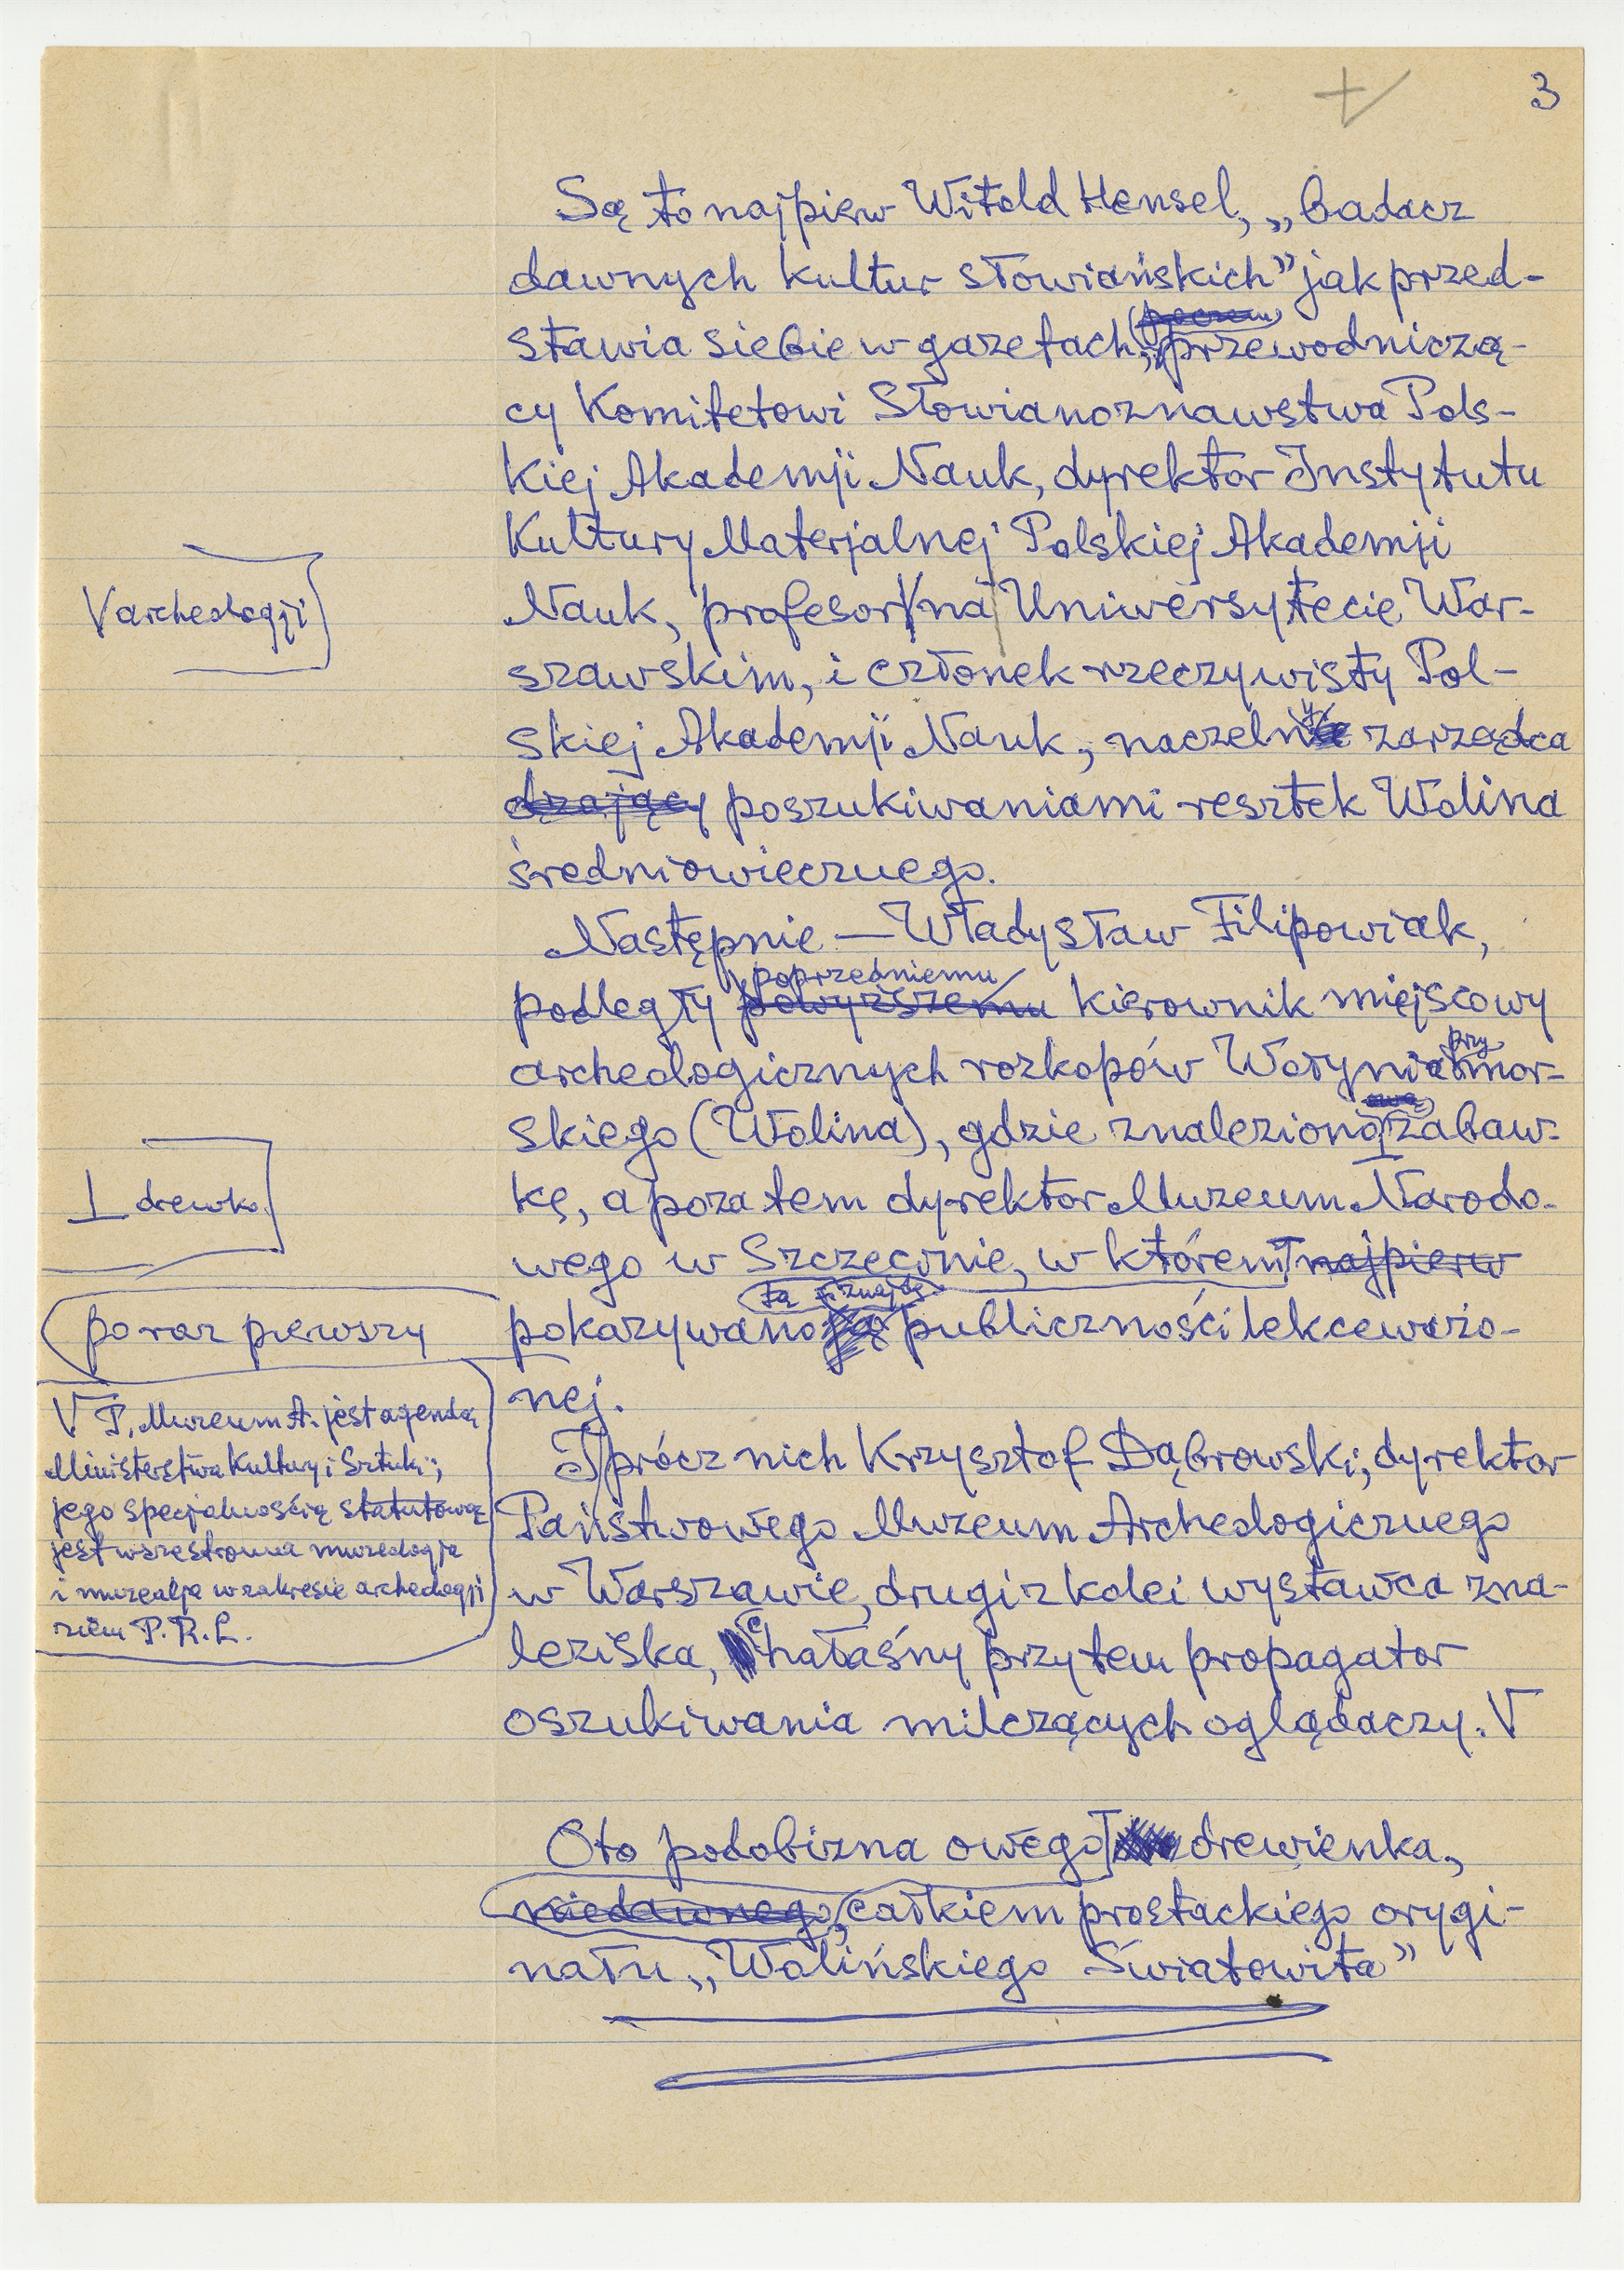 3
Są to najpierw Witold Hensel, „badacz
dawnych kultur słowiańskich” jak przed-
stawia siebie w gazetach, przewodniczą-
cy Komitetowi Słowianoznawstwa Pols-
kiej Akademji Nauk, dyrektor Instytutu
Kultury Materjalnej Polskiej Akademji
V archeologji
Nauk, profesor V na Uniwersytecie War-
szawskim, i członek rzeczywisty Pol-
skiej Akademji Nauk, naczelny zarządca
dzający poszukiwaniami resztek Wolina
średniowiecznego.
Następnie — Władysław Filipowiak,
poprzedniemu
podległy powyższemu kierownik miejscowy
przy
archeologicznych rozkopów Wołynia mor-
skiego (Wolina), gdzie znaleziono zabaw-
⊥ drewko
kę, a poza tem dyrektor Muzeum Narodo-
wego w Szczecinie, w którem najpierw
tą znajdę
po raz pierwszy
pokazywano publiczności lekceważo-
nej.
V P. Muzeum A. jest agendą
Ministerstwa Kultury i Sztuki;
jego specjalnością statutową
jest wszestronna muzeologja
i muzealja w zakresie archeologji
ziem P.R.L.
Oprócz nich Krzysztof Dąbrowski, dyrektor
Państwowego Muzeum Archeologicznego
w Warszawie, drugi z kolei wystawca zna-
leziska, hałaśny przytem propagator
oszukiwania milczących oglądaczy. V
Oto podobizna owego drewienka,
niedawnego, całkiem prostackiego orygi-
nału „Wolińskiego Światowita”